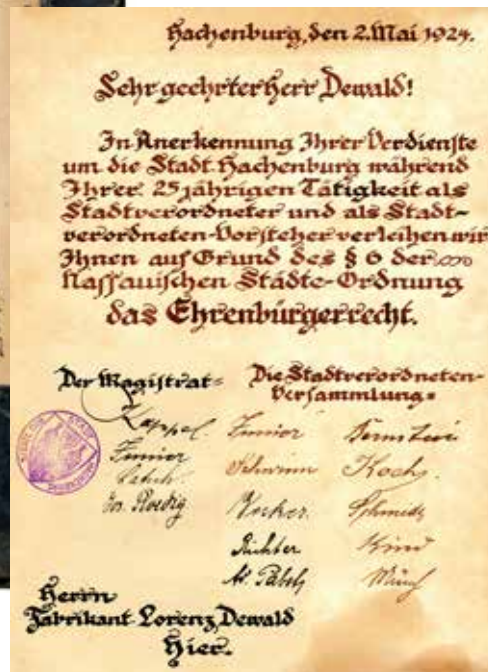 Hachenburg, den 2. Mai 1924.
Sehr geehrter Herr Dewald!
In Anerkennung Ihrer Verdienste
um die Stadt Hachenburg während
Ihrer 25 jährigen Tätigkeit als
Stadtverordneter und als Stadt-
verordneten-Vorsteher verleihen wir
Ihnen auf Grund des § 6 der
Nassauischen Städte-Ordnung
das Ehrenbürgerrecht.
Der Magistrat=
Kappel.
Die Stadtverordneten-
Versammlung=
Schwinn Koch
Schmidt
Richter Kind
Münch
Herrn
Fabrikant Lorenz Dewald
Hier.